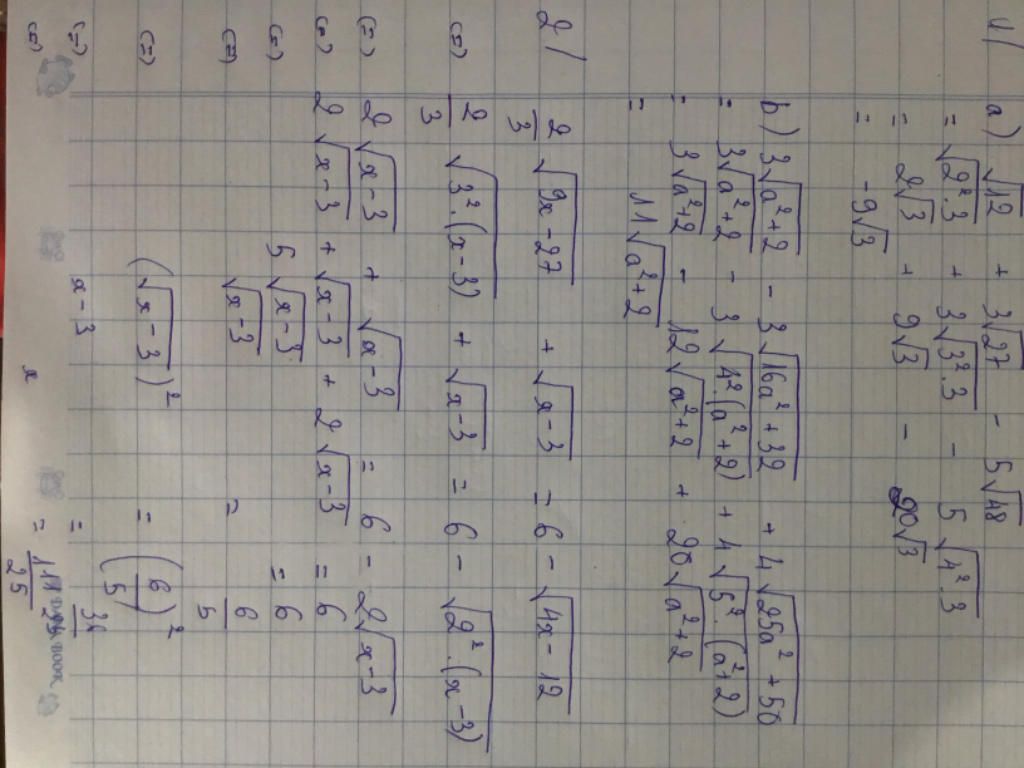 1/ a) √12 + 3√27 - 5√48
= √2².3 + 3√3².3 - 5√4².3
= 2√3 + 9√3 - 20√3
= -9√3
b) 3√a²+2 - 3√16a²+32 + 4√25a²+50
= 3√a²+2 - 3√4².(a²+2) + 4√5².(a²+2)
= 3√a²+2 - 12√a²+2 + 20√a²+2
= 11√a²+2
2/ 2/3 √9x-27 + √x-3 = 6 - √4x-12
(=) 2/3 √3².(x-3) + √x-3 = 6 - √2².(x-3)
(=) 2√x-3 + √x-3 = 6 - 2√x-3
(=) 2√x-3 + √x-3 + 2√x-3 = 6
(=) 5√x-3 = 6
(=) √x-3 = 6/5
(=) (√x-3)² = (6/5)²
(=) x-3 = 36
(=) x = 25